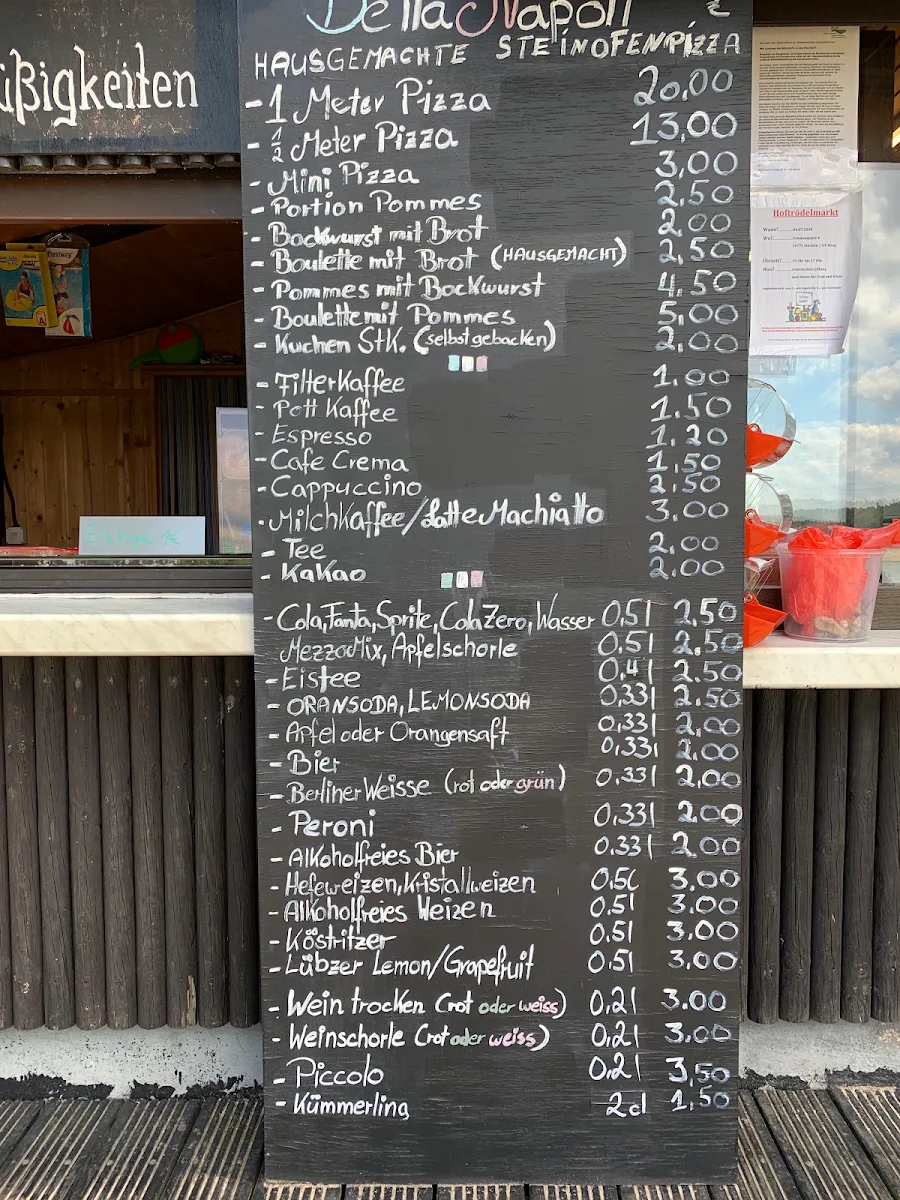 üßigkeiten
Della Napoli
HAUSGEMACHTE STEINOFENPIZZA
- 1 Meter Pizza 20,00
- 1/2 Meter Pizza 13,00
- Mini Pizza 3,00
- Portion Pommes 2,50
- Bockwurst mit Brot 2,00
- Boulette mit Brot (HAUSGEMACHT) 2,50
- Pommes mit Bockwurst 4.50
- Boulette mit Pommes 5,00
- Kuchen Stk. (selbst gebacken) 2,00
- Filterkaffee 1.00
- Pott Kaffee 1.50
- Espresso 1.20
- Cafe Crema 1,50
- Cappuccino 2.50
- Milchkaffee/Latte Machiatto 3.00
- Tee 2,00
- Kakao 2.00
- Cola, Fanta, Sprite, Cola Zero, Wasser 0,5l 2,50
MezzoMix, Apfelschorle 0.5l 2,50
- Eistee 0,4l 2.50
- ORANSODA, LEMONSODA 0,33l 2.50
- Apfel oder Orangensaft 0,33l 2,00
- Bier 0,33l 2,00
- Berliner Weisse (rot oder grün) 0,33l 2,00
- Peroni 0,33l 2,00
- Alkoholfreies Bier 0.33l 2.00
- Hefeweizen, Kristallweizen 0,5l 3.00
- Alkoholfreies Weizen 0.5l 3.00
- Köstritzer 0.5l 3,00
- Lübzer Lemon/Grapefruit 0,5l 3,00
- Wein trocken (rot oder weiss) 0,2l 3.00
- Weinschorle (rot oder weiss) 0,2l 3,00
- Piccolo 0,2l 3,50
- Kümmerling 2cl 1,50
Hoftrödelmarkt